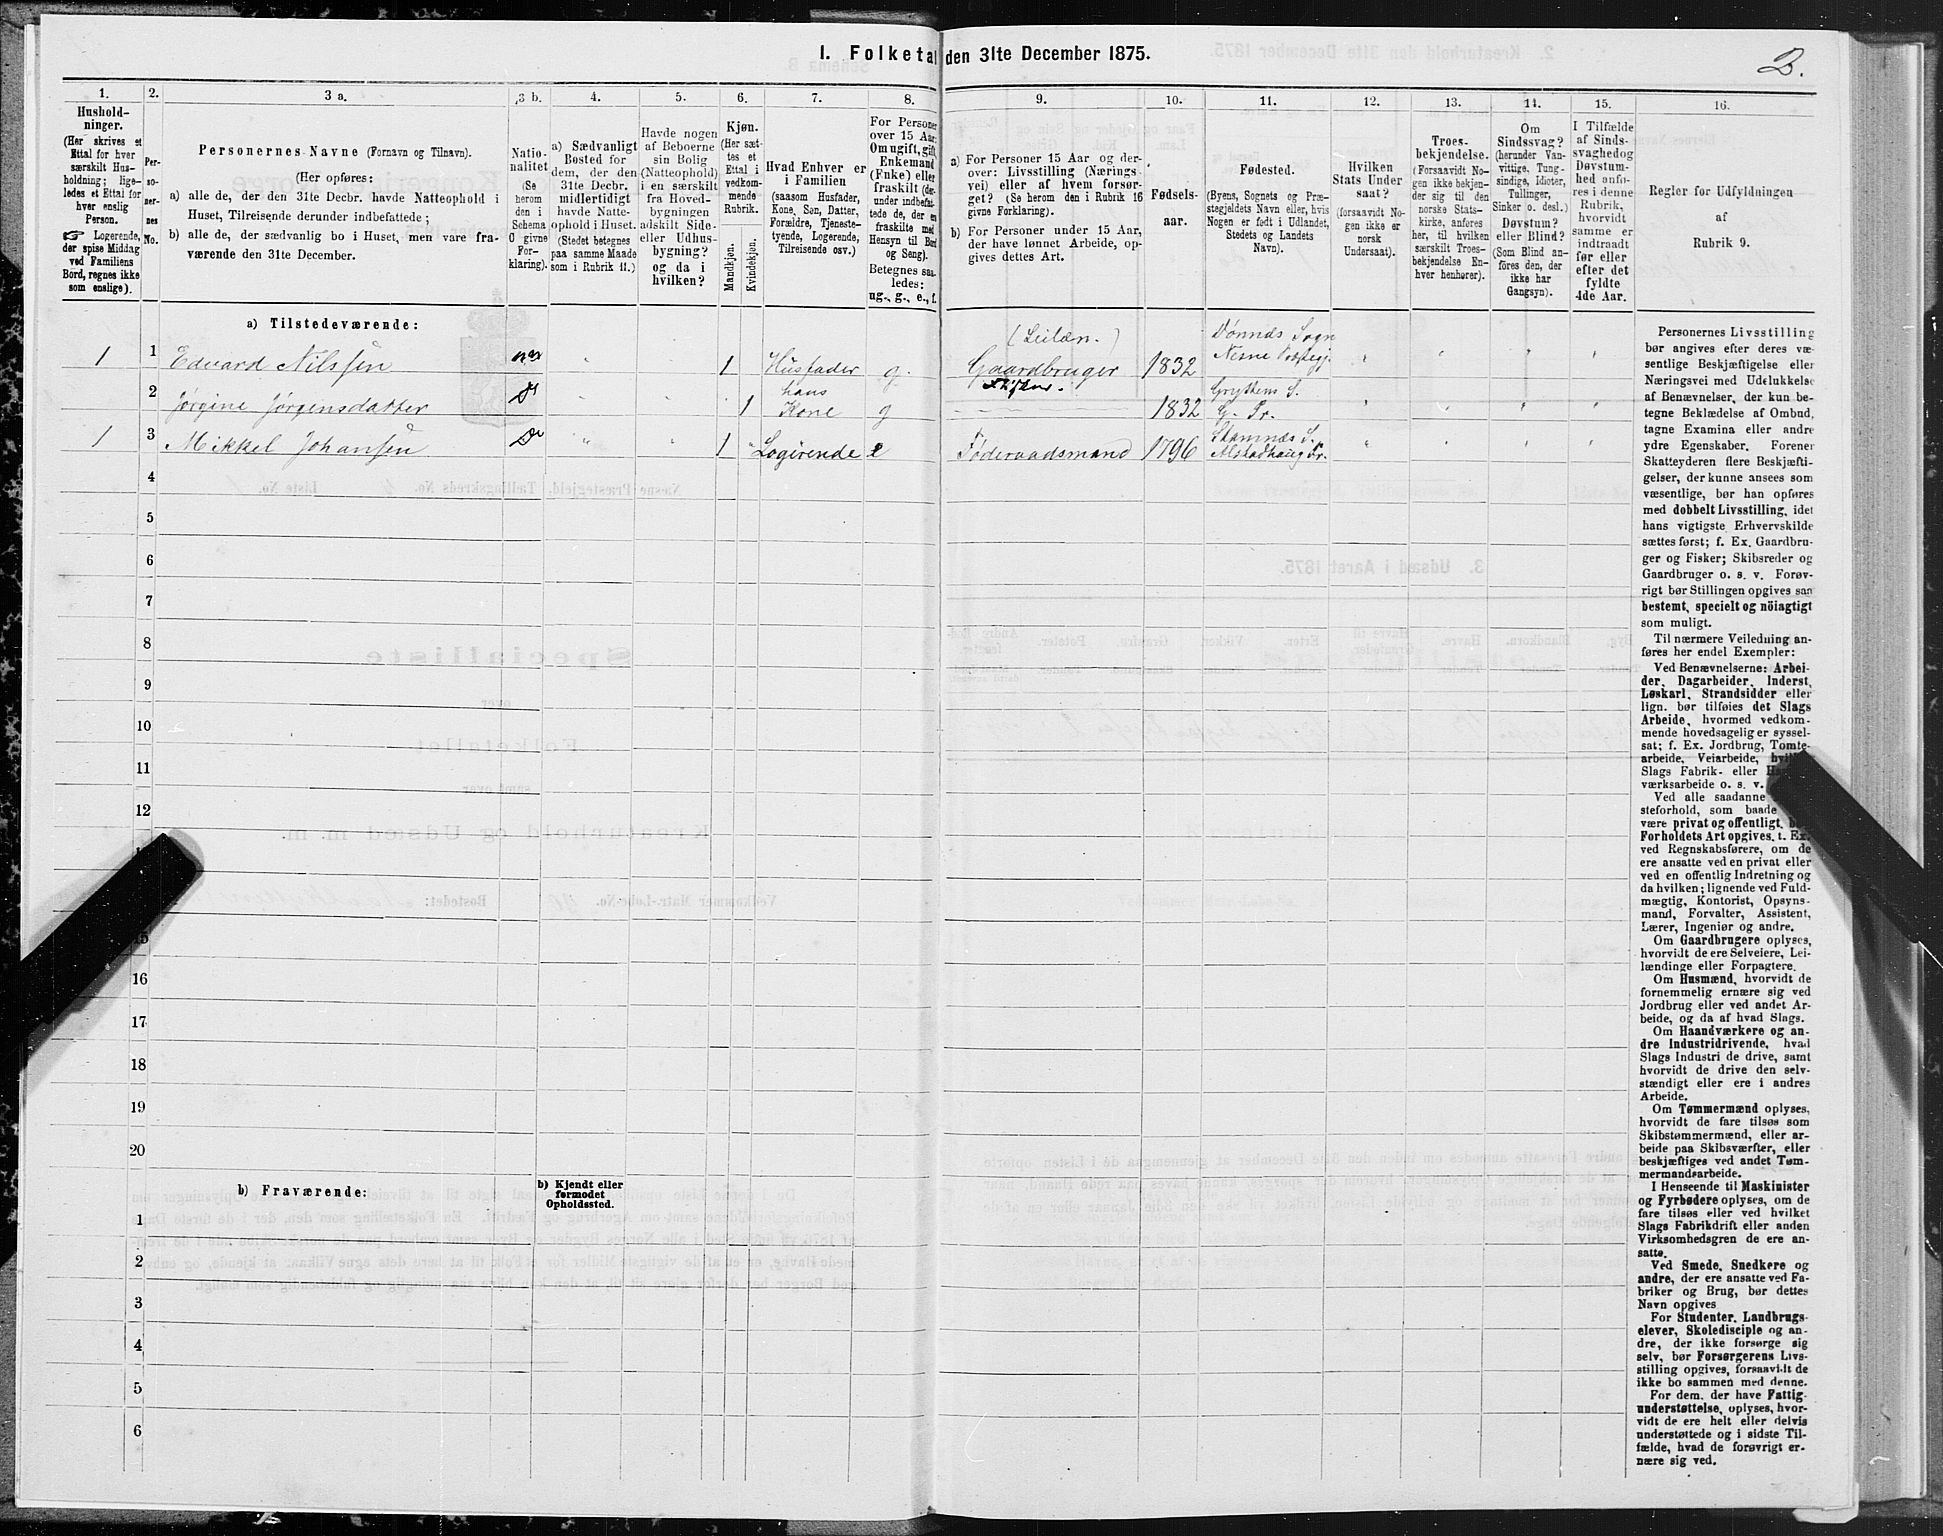 I. Folketal den 31te December 1875.
2.
1.
Hushold-
ninger.
(Her skrives et
Ettal for hver
særskilt Hus-
holdning; lige-
ledes et Ettal for
hver enslig
Person.
☞ Logerende,
der spise Middag
ved Familiens
Bord, regnes ikke
som enslige).
2.
Per-
so-
ner-
nes
No.
3 a.
Personernes Navne (Fornavn og Tilnavn).
(Her opføres:
a) alle de, der den 31te Decbr. havde Natteophold i
Huset, Tilreisende derunder indbefattede;
b) alle de, der sædvanlig bo i Huset, men vare fra-
værende den 31te December.
3 b.
Natio-
nalitet
(Se
herom
den i
Schema
C givne
For-
klaring).
4.
a) Sædvanligt
Bosted for
dem, der den
31te Decbr.
midlertidigt
havde Natte-
ophold i Huset.
(Stedet betegnes
paa samme Maade
som i Rubrik 11.)
5.
Havde nogen
af Beboerne
sin Bolig
(Natteophold)
i en særskilt
fra Hoved-
bygningen
adskilt Side-
eller Udhus-
bygning?
og da i
hvilken?
6.
Kjøn.
(Her sæt-
tes et
Ettal i
vedkom-
mende
Rubrik.
Mandkjøn.
Kvindekjøn.
7.
Hvad Enhver er
i Familien
(saasom Husfader,
Kone, Søn, Datter,
Forældre, Tjeneste-
tyende, Logerende,
Tilreisende osv.)
8.
For Personer
over 15 Aar:
Om ugift, gift,
Enkemand
(Enke) eller
fraskilt (der-
under indbefat-
tede de, der er
fraskilte med
Hensyn til Bord
og Seng).
Betegnes saa-
ledes:
ug., g., e., f.
9.
a) For Personer 15 Aar og der-
over: Livsstilling (Nærings-
vei) eller af hvem forsør-
get? (Se herom den i Rubrik 16
givne Forklaring).
b) For Personer under 15 Aar,
der have lønnet Arbeide, op-
gives dettes Art.
10.
Fødsels-
aar.
11.
Fødested.
(Byens, Sognets og Præ-
stegjeldets Navn eller, hvis
Nogen er født i Udlandet,
Stedets og Landets
Navn).
12.
Hvilken
Stats Under
saat?
(forsaavidt No-
gen ikke er
norsk
Undersaat).
13.
Troes-
bekjendelse.
(Forsaavidt No-
gen ikke bekjen-
der sig til den
norske Stats-
kirke, anføres
her, til hvilken
særskilt Troes-
bekjendelse En-
hver henhører).
14.
Om
Sindssvag?
(herunder Van-
vittige, Tung-
sindige, Idioter,
Tullinger,
Sinker o. desl.)
Døvstum?
eller Blind?
(Som Blind an-
føres den, der
ikke har
Gangsyn).
15.
I Tilfælde
af Sinds-
svaghed og
Døvstum-
hed anfø-
res i denne
Rubrik,
hvorvidt
samme er
indtraadt
før eller
efter det
fyldte
4de Aar.
16.
Regler for Udfyldningen
af
Rubrik 9.
a) Tilstedeværende:
1 1 Edvard Nilssen 1 Husfader g. (Leilæn.) Gaardbruger 1832 Dønnæs Sogn
2 Jørgine Jørgensdatter 1 hans Kone g 1832 Gryttens S. G. Pr.
1 3 Mikkel Johansen 1 Logerende e Føderaadsmand 1796 Stamnæs S. Alstadhaug Pr.
4
5
6
7
8
9
10
11
12
15
16
17
18
19
20
b) Fraværende:
b) Kjendt eller
formodet
Opholdssted.
1
2
3
4
5
6
Personernes Livsstilling
bør angives efter deres væ-
sentlige Beskjæftigelse eller
Næringsvei med Udelukkelse
af Benævnelser, der kun be-
tegne Beklædelse af Ombud,
tagne Examina eller andre
ydre Egenskaber. Forener
Skatteyderen flere Beskjæfti-
gelser, der kunne ansees som
væsentlige, bør han opføres
med dobbelt Livsstilling, idet
hans vigtigste Erhvervskilde
sættes først; f. Ex. Gaardbru-
ger og Fisker; Skibsreder og
Gaardbruger o. s. v. Forøv-
rigt bør Stillingen opgives saa
bestemt, specielt og nöiagtigt
som muligt.
Til nærmere Veiledning an-
føres her endel Exempler:
Ved Benævnelserne: Arbei-
der, Dagarbeider, Inderst,
Løskarl, Strandsidder eller
lign. bør tilføies det Slags
Arbeide, hvormed vedkom-
mende hovedsagelig er syssel-
sat; f. Ex. Jordbrug, Tomte-
arbeide, Veiarbeide,
Slags Fabrik- eller
værksarbeide o. s. v.
Ved alle saadanne
steforhold, som baade
være privat og offentligt,
Forholdets Art opgives, t. Ex.
ved Regnskabsførere, om de
ere ansatte ved en privat eller
ved en offentlig Indretning og
da hvilken; lignende ved Fuld-
mægtig, Kontorist, Opsyns-
mand, Forvalter, Assistent,
Lærer, Ingeniør og andre.
Om Gaardbrugere oplyses,
hvorvidt de ere Selveiere, Lei-
lændinge eller Forpagtere.
Om Husmænd, hvorvidt de
fornemmelig ernære sig ved
Jordbrug eller ved andet Ar-
beide, og da af hvad Slags.
Om Haandværkere og an-
dre Industridrivende, hvad
Slags Industri de drive, samt
hvorvidt de drive den selv-
stændigt eller ere i andres
Arbeide.
Om Tømmermænd oplyses,
hvorvidt de fare tilsøs som
Skibstømmermænd, eller ar-
beide paa Skibsværfter, eller
beskjæftiges ved andet Tøm-
mermandsarbeide.
I Henseende til Maskinister
og Fyrbødere oplyses, om de
fare tilsøs eller ved hvilket
Slags Fabrikdrift eller anden
Virksomhedsgren de ere an-
satte.
Ved Smede, Snedkere og
andre, der ere ansatte ved Fa-
briker og Brug, bør dettes
Navn opgives
For Studenter, Landbrugs-
elever, Skoledisciple og an-
dre, der ikke forsørge sig
selv, bør Forsørgerens Livs-
stilling opgives, forsaavidt de
ikke bo sammen med denne.
For dem, der have Fattig-
understøttelse, oplyses, hvor-
vidt de ere helt eller delvis
understøttede og i sidste Til-
fælde, hvad de forøvrigt er-
nære sig ved.